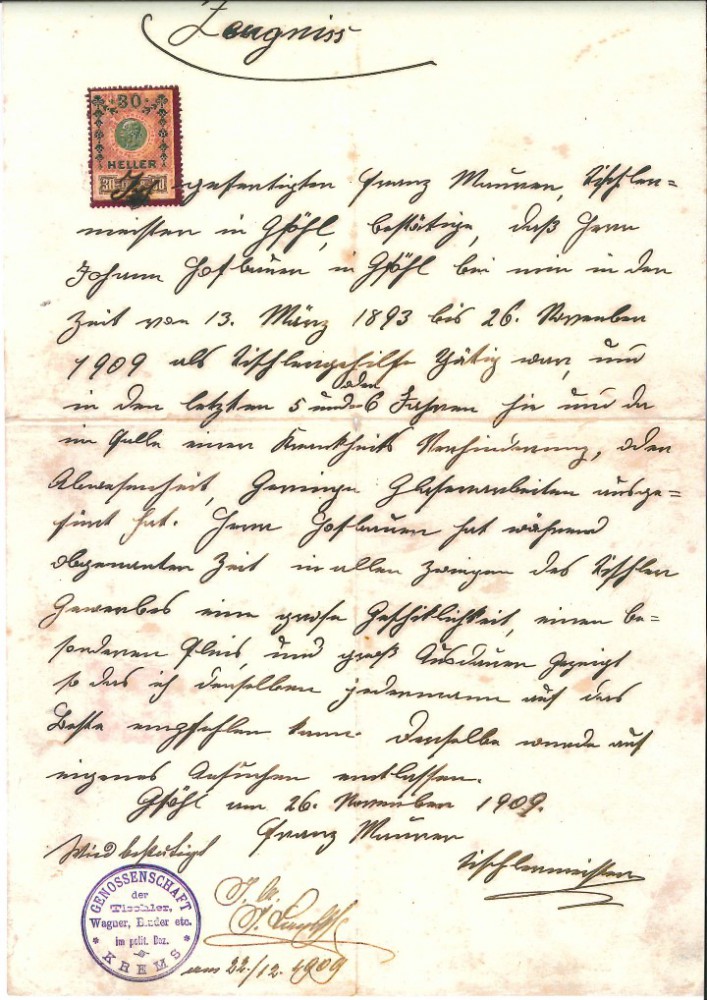 Zeugniss
30
HELLER
gefertigter Franz Maurer, Tischler=
meister in Gföhl, bestätige, daß Herr
Johann Hofbauer in Gföhl bei mir in der
Zeit von 13. März 1893 bis 26. November
1909 als Tischlergehilfe thätig war, und
in den letzten 5 und 6 Jahren hie und da
oder
im Falle einer Krankheits Verhinderung, oder
Abwesenheit, Geringe Glaserarbeiten ausge=
fürt hat. Herr Hofbauer hat während
obgenanter Zeit in allen Zweigen des Tischler
Gewerbes eine grose Geschiklichkeit, einen be=
sonderen Fleis, und groß Ausdauer gezeigt
so das ich denselben jedermann auf das
Beste empfehlen kann. Derselbe wurde auf
eigenes Ansuchen entlassen.
Gföhl am 26. November 1909.
Franz Maurer
Tischlermeister
Wird bestätigt
GENOSSENSCHAFT
der
Tischler,
Wagner, Binder etc.
im polit. Bez.
KREMS
am 22./12. 1909